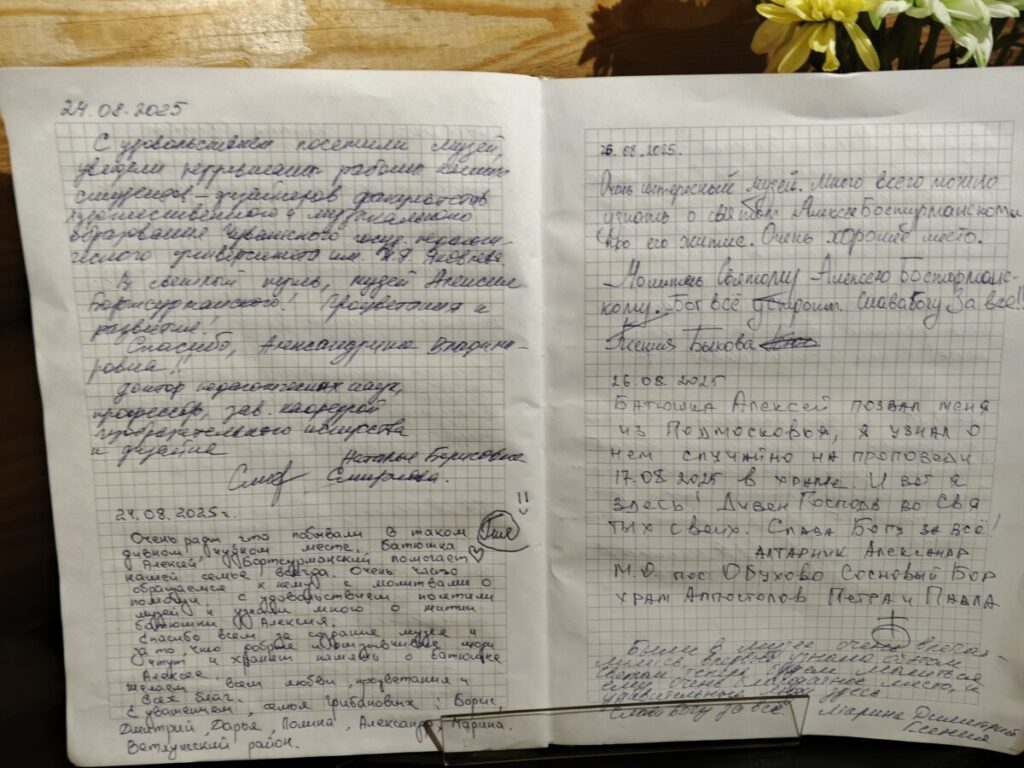 24.08.2025
С удовольствием посетили музей,
увидели первыми работы наших
студентов-дизайнеров факультетов
художественного и музыкального
образования Чувашского госуд. педагоги-
ческого университета им. И.Я. Яковлева.
В светлый путь, музей Алексия
Бортсурманского! Процветания и
развития!
Спасибо, Александрина Владими-
ровна!!
доктор педагогических наук,
профессор, зав. кафедрой
изобразительного искусства
и дизайна
Наталья Борисовна
Смирнова.
24.08.2025г.
Очень рады что побывали в таком
дивном, чудном месте. Батюшка
Алексий Бортсурманский помогает
нашей семье всегда. Очень часто
обращаемся к нему с молитвами о
помощи. С удовольствием посетили
музей и узнали много о житии
батюшки Алексия.
Спасибо всем за создание музея и
за то, что добрые и отзывчивые люди
чтут и хранят память о батюшке
Алексее.
Желаем всем любви, процветания и
всех благ.
С уважением, семья Грибановых: Борис,
Дмитрий, Дарья, Полина, Александр, Марина.
Ветлужский район.
26.08.2025.
Очень интересный музей. Много всего можно
узнать о святом Алексее Бостурманском и
про его житие. Очень хорошее место.
Молитесь Святому Алексею Босторманс-
кому. Бог всё устроит. Слава богу За все!!
Ксения Быкова
26.08.2025
Батюшка Алексей позвал меня
из Подмосковья, я узнал о
нем случайно на проповеди
17.08.2025 в храме. И вот я
здесь! Дивен Господь во Свя
тых своих. Слава Богу за всё!
Алтарник Александр
М.О. пос. Обухово Сосновый Бор
храм Аппостолов Петра и Павла
Были в музее очень впеча-
лились, впервые узнала об этом
святом. Теперь будем молиться
ему. Очень благодатное место, и
удивительный музей здесь
Слава богу за всё. Марина Димитрий
Ксения